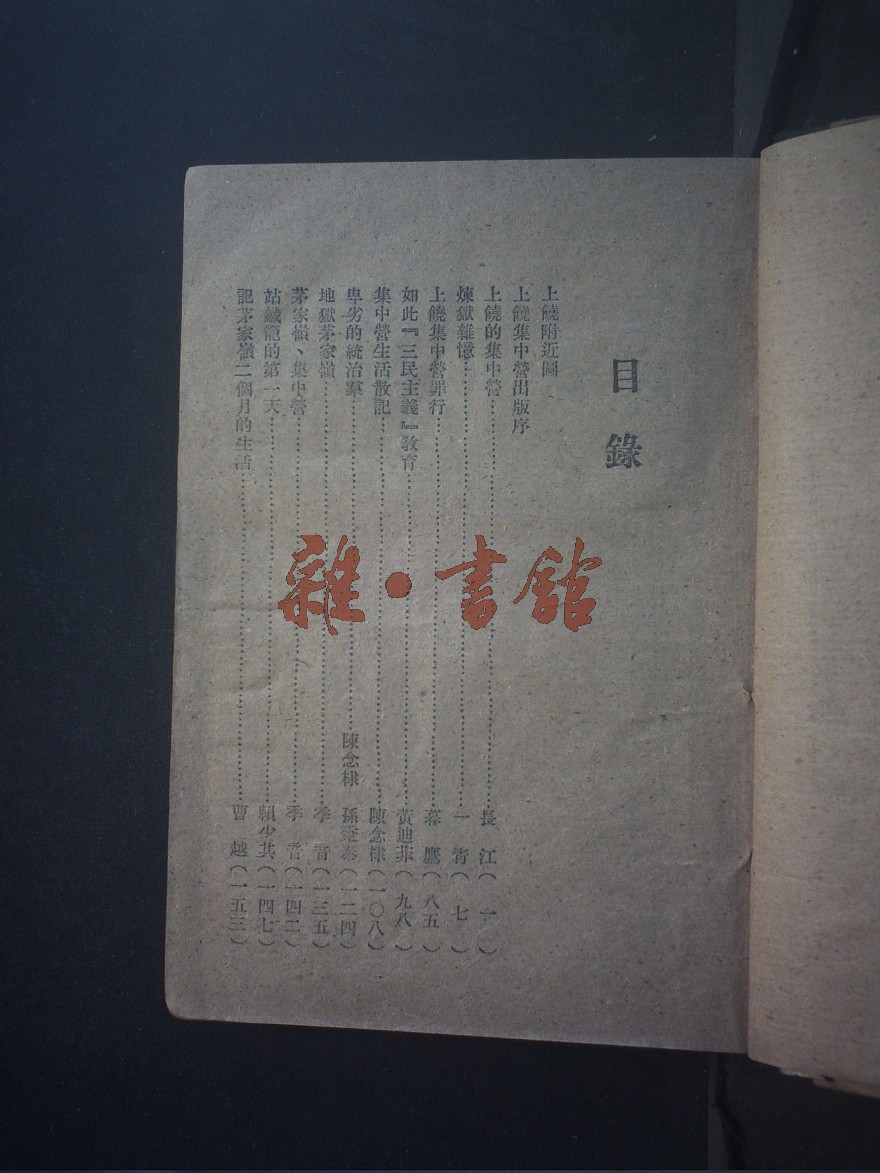 目錄
上饒附近圖
上饒集中營出版序
上饒的集中營……長江(一)
煉獄雜憶……一青(七)
上饒集中營罪行……慕鷹(八五)
如此『三民主義』教育……黃迪菲(九八)
集中營生活散記……陳念棣(一〇八)
卑劣的統治羣……陳念棣 孫秉泰(一二四)
地獄茅家嶺……季音(一三五)
茅家嶺、集中營……季音(一四二)
站鐵籠的第一天……賴少其(一四七)
記茅家嶺二個月的生活……曹越(一五三)
雜·書館